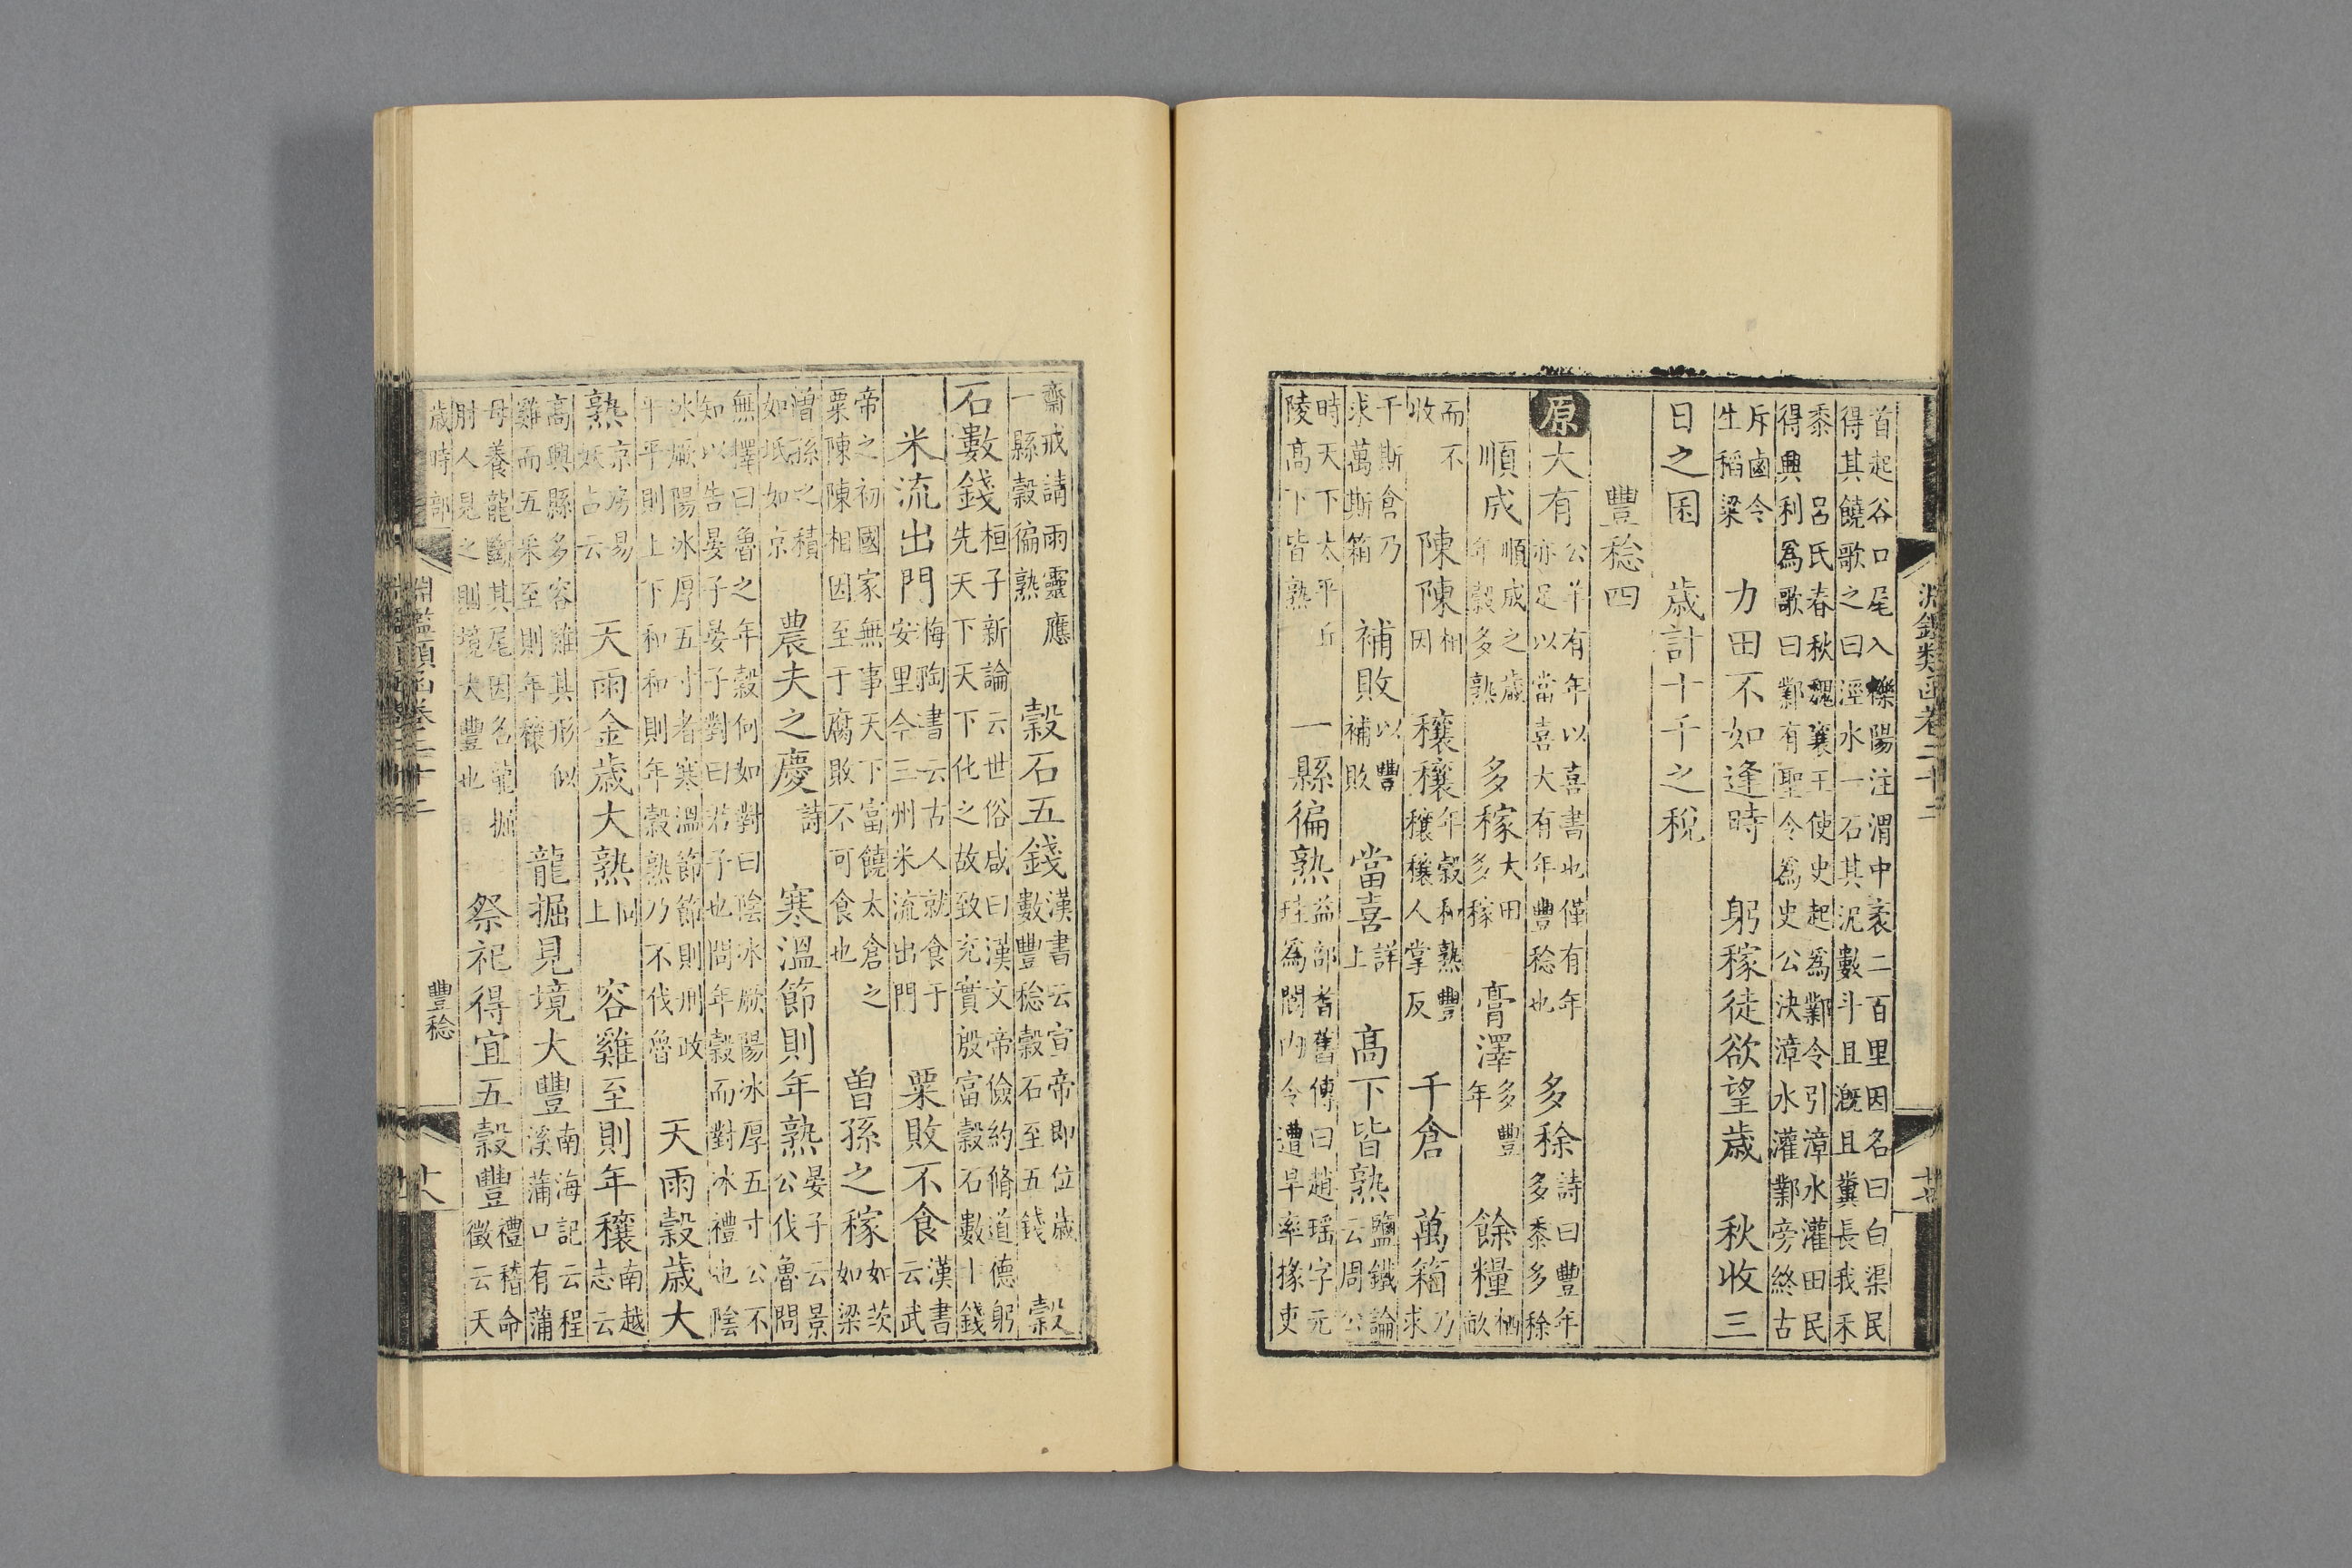 淵鑑類函卷二十二
首起谷口尾入櫟陽注渭中袤二百里因名曰白渠民
得其饒歌之曰涇水一石其泥數斗且漑且糞長我禾
黍 呂氏春秋魏襄王使史起爲鄴令引漳水灌田民
得興利爲歌曰鄴有聖令爲史公決漳水灌鄴旁終古
斥鹵令生稻粱 力田不如逢時 躬稼徒欲望歲 秋收三
日之困 歲計十千之稅
豐稔四
原 大有 公羊有年以喜書也僅有年亦足以當喜大有年豐稔也 多稌 詩曰豐年多黍多稌
順成 順成之歲年穀多熟 多稼 大田多稼 膏澤 多豐年 餘糧 栖畝
而不收 陳陳 相因 穰穰 年穀和熟豐穰穰人掌反 千倉 萬箱 乃求
千斯倉乃求萬斯箱 補敗 以豐補敗 當喜 詳上 高下皆熟 鹽鐵論云周公
時天下太平丘陵高下皆熟 一縣徧熟 益部耆舊傳曰趙瑶字元珪爲閬內令遭旱率掾吏
齋戒請雨靈應一縣穀徧熟 穀石五錢 漢書云宣帝卽位歲數豐稔穀石至五錢 穀
石數錢 桓子新論云世俗咸曰漢文帝儉約脩道德躬先天下天下化之故致充實殷富穀石數十錢
米流出門 悔陶書云古人就食于安里今三州米流出門 粟敗不食 漢書云武
帝之初國家無事天下富饒太倉之粟陳陳相因至于腐敗不可食也 曾孫之稼 如茨如梁
曾孫之積如坻如京 農夫之慶 詩 寒溫節則年熟 晏子云景公伐魯問
無擇曰魯之年穀何如對曰陰冰厥陽冰厚五寸公不知以告晏子晏子對曰君子也問年穀而對冰禮也陰
冰厥陽冰厚五寸者寒溫節節則刑政平平則上下和和則年穀熟乃不伐魯 天雨穀歲大
熟 京房易妖占云 天雨金歲大熟 仝上 容雞至則年穰 南越志云
高興縣多容雞其形似雞而五采至則年穰 龍掘見境大豐 南海記云程溪蒲口有蒲
母養龍斷其尾因名龍掘肘人見之則境大豐也 祭祀得宜五穀豐 禮稽命徵云天
歲時部 淵鑑類函卷二十二 豐稔